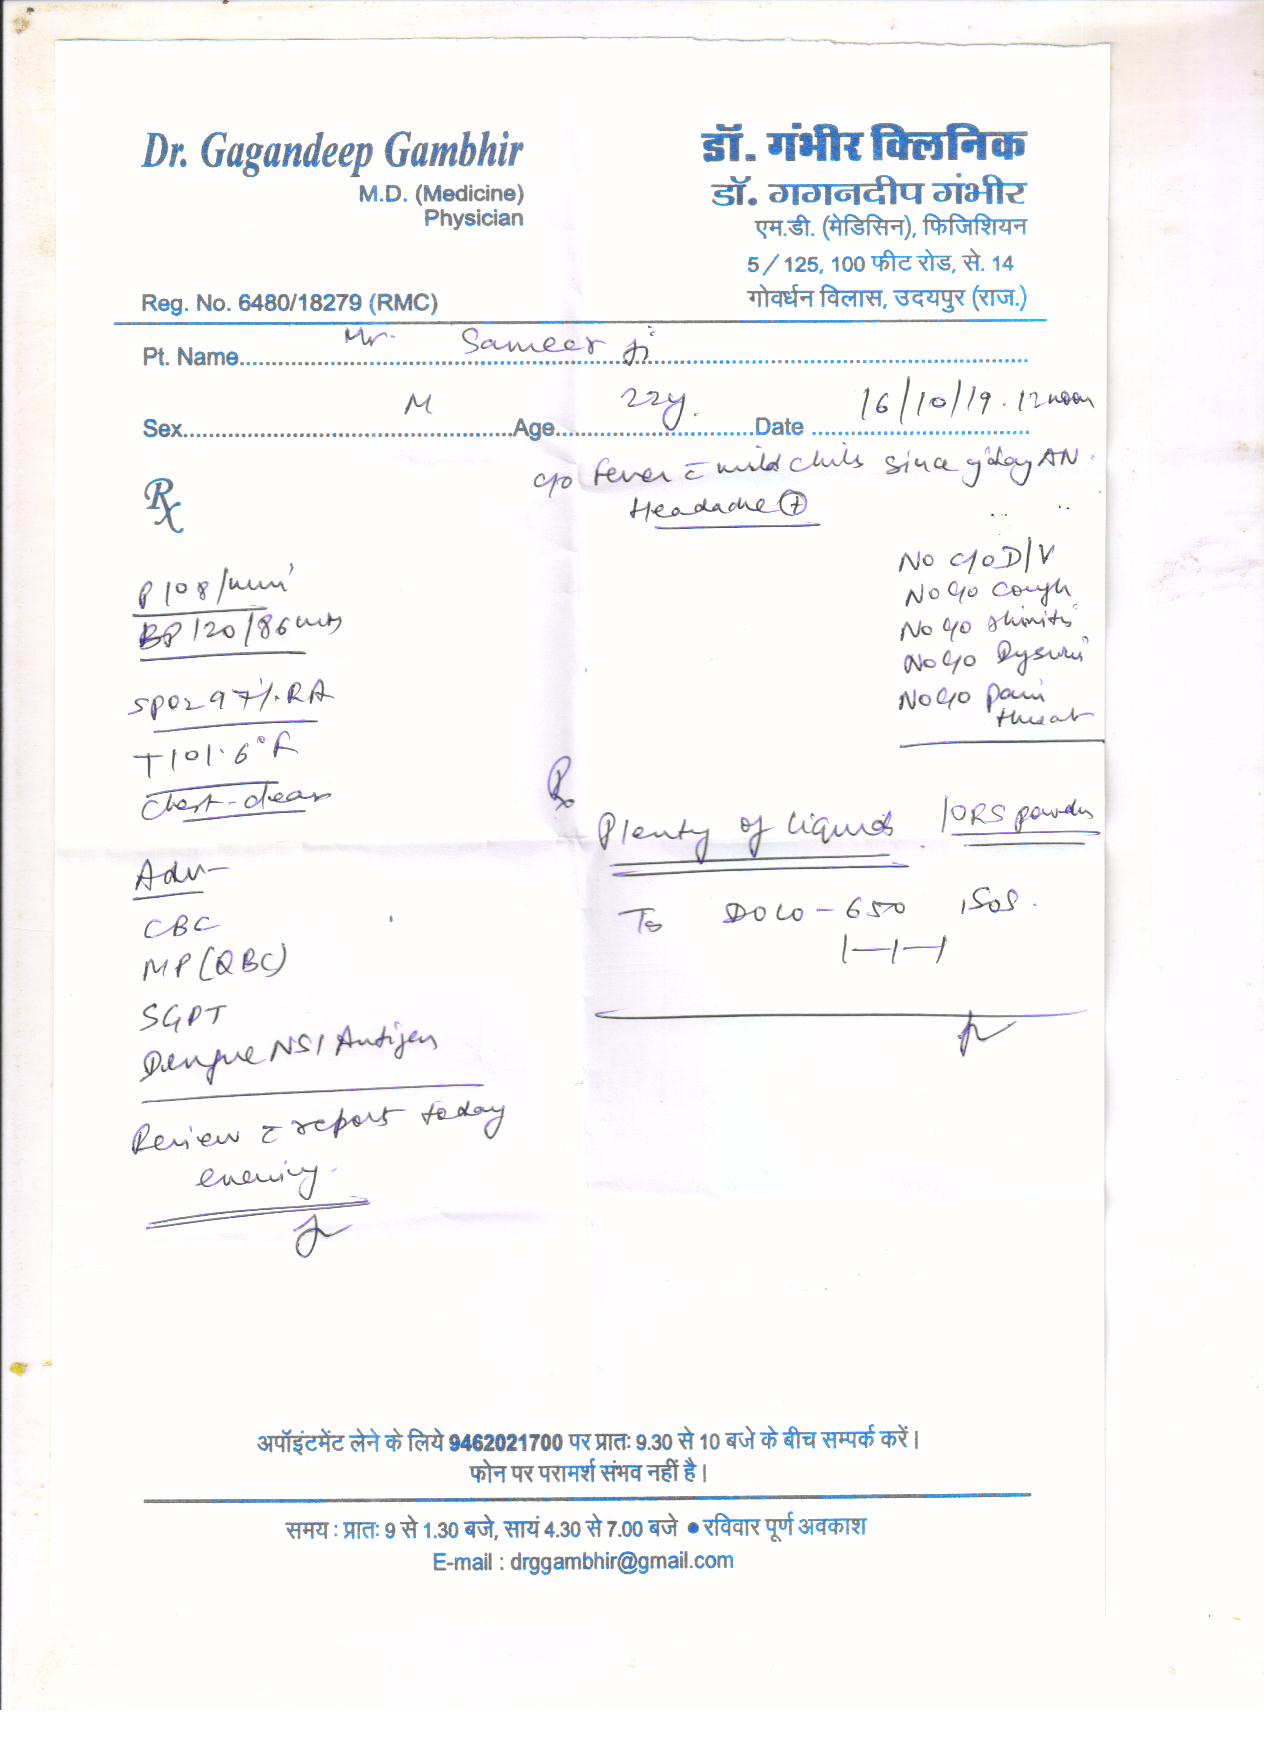 Dr. Gagandeep Gambhir
M.D. (Medicine)
Physician
Reg. No. 6480/18279 (RMC)
डॉ. गंभीर क्लिनिक
डॉ. गगनदीप गंभीर
एम.डी. (मेडिसिन), फिजिशियन
5/125, 100 फीट रोड, से. 14
गोवर्धन विलास, उदयपुर (राज.)
Pt. Name Mr. Sameer ji
Sex M Age 22y. Date 16/10/19. 12 noon
c/o Fever c mild chills since y'day AN.
Headache (+)
Rx
No c/o D/V
No c/o cough
No c/o
No c/o Dysuria
No c/o pain
throat
P 108/min
BP 120/86 mm
SpO2 97%. RA
T 101.6°F
Chest - clear
Adv -
CBC
MP (QBC)
SGPT
Dengue NS1 Antigen
Review c report today
evening.
Rx
Plenty of liquids. / ORS powder
Tb DOLO - 650 , SOS.
1—1—1
अपॉइंटमेंट लेने के लिये 9462021700 पर प्रातः 9.30 से 10 बजे के बीच सम्पर्क करें।
फोन पर परामर्श संभव नहीं है।
समय : प्रातः 9 से 1.30 बजे, सायं 4.30 से 7.00 बजे ● रविवार पूर्ण अवकाश
E-mail : drggambhir@gmail.com